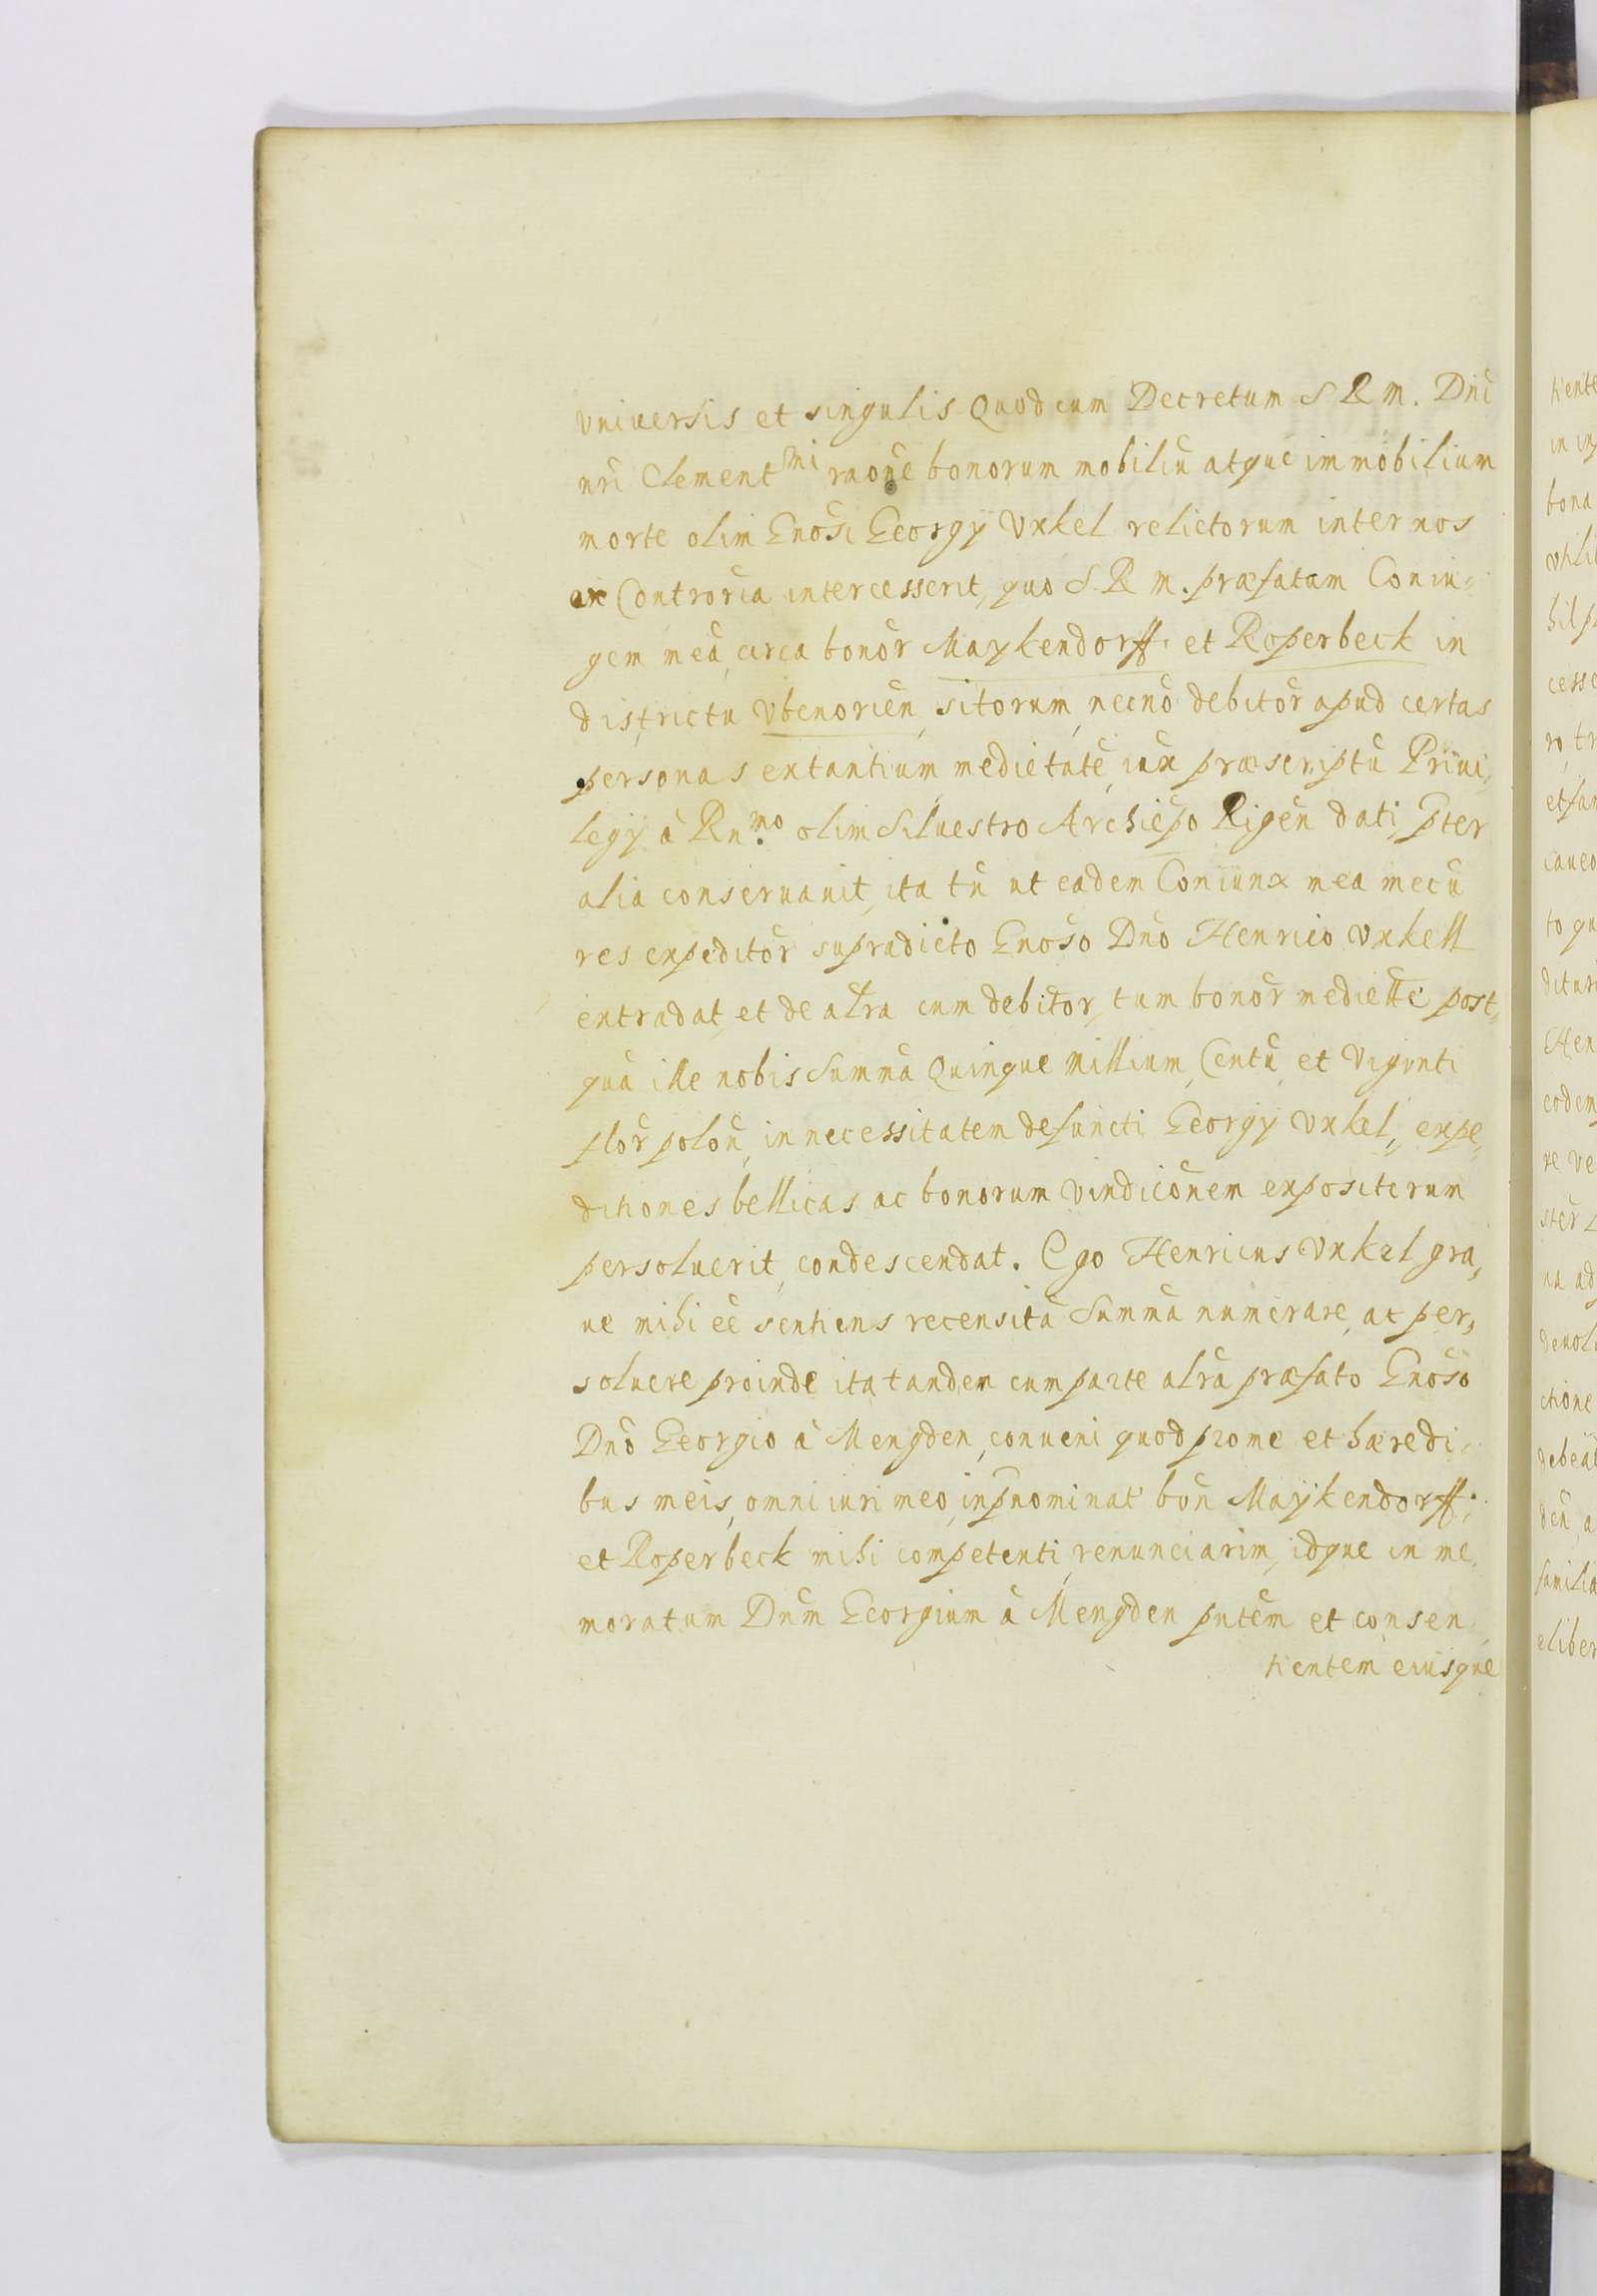 vniuersis et singulis Quod cum Decretum S R M. Dnī
nrī Clement^mi raoñe bonorum mobiliū atque immobilium
morte olim Gnosi Georgÿ Vxkel relictorum inter nos
ex Controrīa intercesserit, quo S. R M. præfatam Coniu=
gem meā, circa bonor̄ Maykendorff et Roperbeck in
districtu Vbenorien̄, sitorum, necnō debitor̄ apud certas
personas extantium, medietatē, iux præscriptū Priui,
legÿ à Rn^mo. olim Siluestro Archiepō Rigen̄ dati, p̄ter
alia conseruauit, ita tn̄ ut eadem Coniunx mea mecū
res expeditor̄ supradicto Gnosō Dnō Henrico Vxkell
extradat, et de alrā cum debitor̄, tum bonor̄ mediette post,
quā ille nobis Summā Quinque Millium, Centū et Viginti
flor̄ polon̄, in necessitatem defuncti Georgÿ Vxkel, expe,
ditiones bellicas ac bonorum vindicōnem expositorum
persoluerit, condescendat. Ego Henricus Vxkel gra,
ue mihi eē sentiens recensitā Summā numerare, at per,
soluere proinde ita tandem cum parte alrā præfato Gnosō
Dnō Georgio à Mengden, conueni quod pro me et hæredi,
bus meis, omni iuri meo, in p̄nominat bon̄ Maÿkendorff,
et Roperbeck mihi competenti, renunciarim, idque in me,
moratum Dnm̄ Georgium à Mengden pntēm et consen,
tientem eiusque